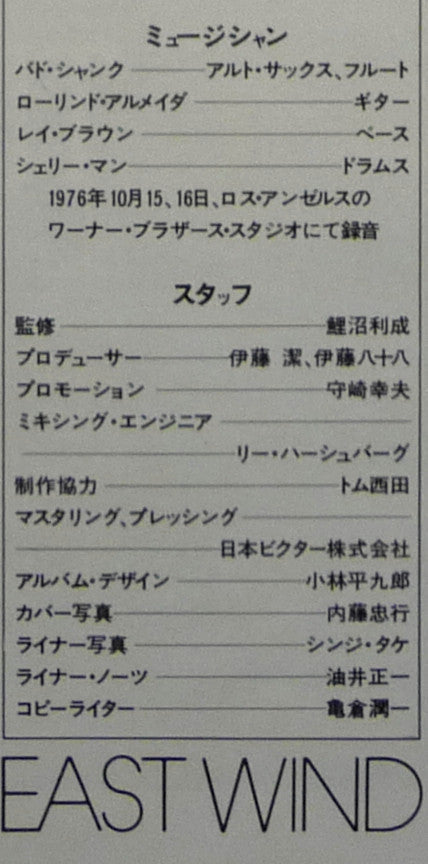 ミュージシャン
バド・シャンク アルト・サックス、フルート
ローリンド・アルメイダ ギター
レイ・ブラウン ベース
シェリー・マン ドラムス
1976年10月15、16日、ロス・アンゼルスの
ワーナー・ブラザース・スタジオにて録音
スタッフ
監修 鯉沼利成
プロデューサー 伊藤 潔、伊藤八十八
プロモーション 守崎幸夫
ミキシング・エンジニア
リー・ハーシュバーグ
制作協力 トム西田
マスタリング、プレッシング
日本ビクター株式会社
アルバム・デザイン 小林平九郎
カバー写真 内藤忠行
ライナー写真 シンジ・タケ
ライナー・ノーツ 油井正一
コピーライター 亀倉潤一
EAST WIND